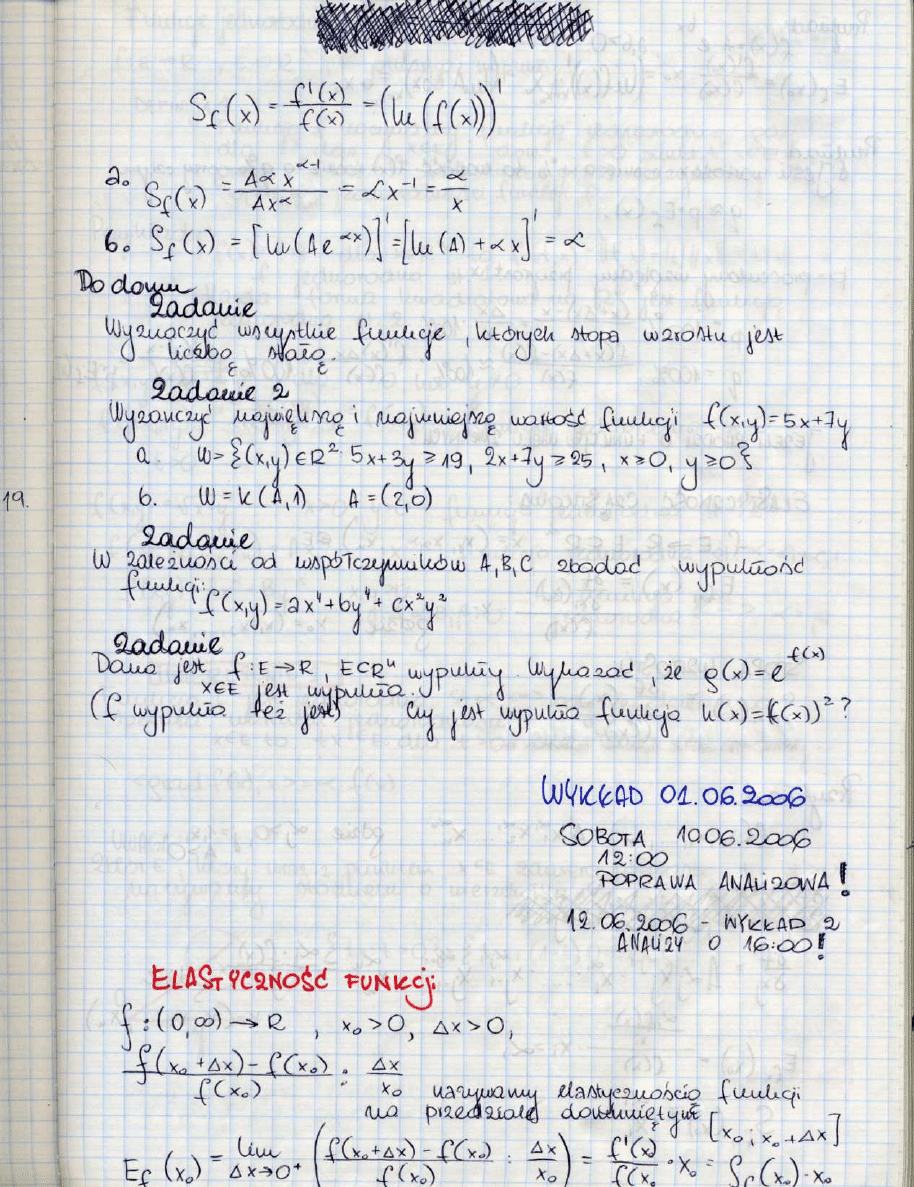 S_f(x) = f'(x)/f(x) = (ln(f(x)))'
a. S_f(x) = Aαx^(α-1)/Ax^α = αx^(-1) = α/x
b. S_f(x) = [ln(Ae^(αx))]' = [ln(A) + αx]' = α
Do domu
Zadanie
Wyznaczyć wszystkie funkcje, których stopa wzrostu jest
liczbą stałą.
Zadanie 2
Wyzanczyć największą i najmniejszą wartość funkcji f(x,y)=5x+7y
a. W={(x,y)∈R²: 5x+3y≥19, 2x+7y≥25, x≥0, y≥0}
19.
b. W=K(A,1) A=(2,0)
Zadanie
W zależności od współczynników A,B,C zbadać wypukłość
funkcji:
f(x,y)=ax⁴+by⁴+cx²y²
Zadanie
Dana jest f:E→R, E⊂Rⁿ wypukły. Wykazać, że g(x)=e^f(x)
x∈E jest wypukła.
(f wypukła też jest) Czy jest wypukła funkcja k(x)=(f(x))²?
WYKŁAD 01.06.2006
SOBOTA 10.06.2006
12:00
POPRAWA ANALIZOWA!
12.06.2006 - WYKŁAD 2
ANALIZY O 16:00!
ELASTYCZNOŚĆ FUNKCJI
f:(0,∞)→R, x₀>0, Δx>0,
(f(x₀+Δx)-f(x₀))/f(x₀) : Δx/x₀ nazywamy elastycznością funkcji
na przedziale domkniętym [x₀; x₀+Δx]
E_f(x₀) = lim Δx→0⁺ ((f(x₀+Δx)-f(x₀))/f(x₀) : Δx/x₀) = f'(x)/f(x₀ · x₀ = S_f(x₀)·x₀